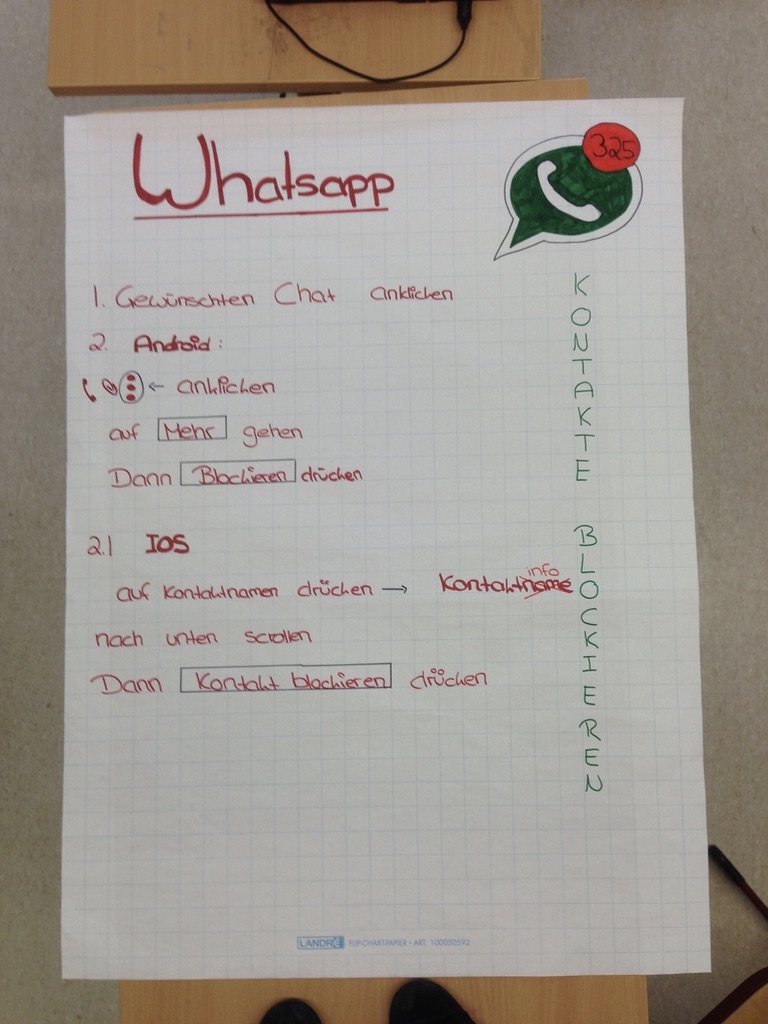 Whatsapp
325
1. Gewünschten Chat anklicken
2. Android:
← anklicken
auf Mehr gehen
Dann Blockieren drücken
2.1 IOS
auf Kontaktnamen drücken → Kontaktname info
nach unten scrollen
Dann Kontakt blockieren drücken
KONTAKTE BLOCKIEREN
LANDRÉ FLIP-CHART-PAPIER • ART. 100050592